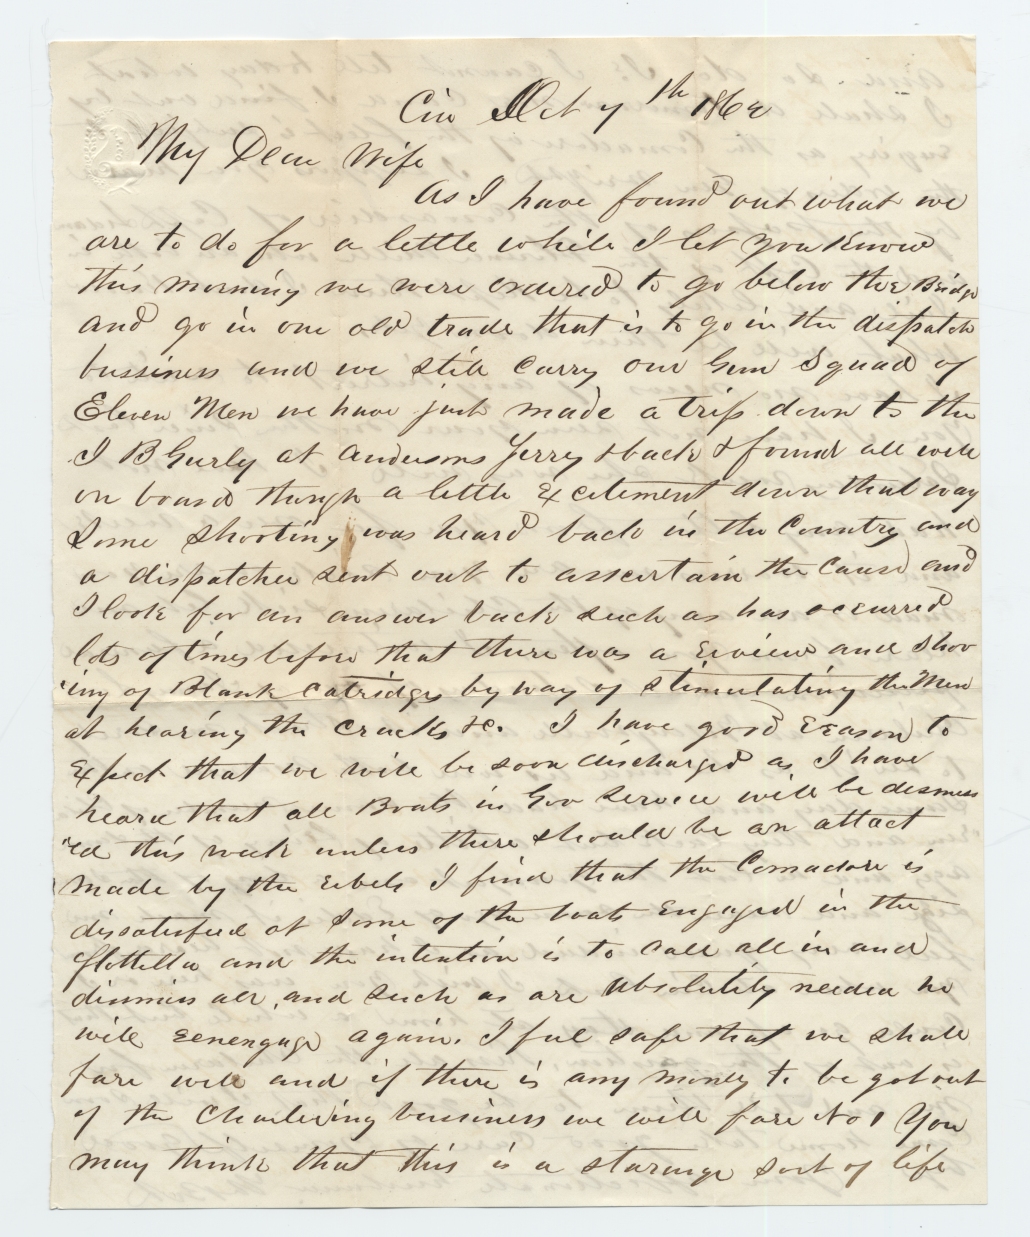 Cin Oct 7th 1862
My Dear Wife
As I have found out what we
are to do for a little while I let you know
this morning we were ordered to go below the Bridge
and go in our old trade that is to go in the dispatch
bussiness and we still carry our Gun Squad of
Eleven Men we have just made a trip down to the
I B Gurly at Andersons Ferry & back & found all well
on board though a little Excitement down that way
Some shooting was heard back in the Country and
a dispatche sent out to assertain the Cause and
I look for an answer back such as has occurred
lots of times before that there was a review and Shoo
"ing of Blank Catridges by way of stimulating the Men
at hearing the cracks &c. I have good reason to
Expect that we will be soon discharged as I have
heard that all Boats in Gov Service will be dismiss
"ed this week unless there should be an attact
made by the rebels I find that the Comadore is
dissatisfied at Some of the boats Engaged in the
flottilla and the intention is to call all in and
dismiss all, and such as are absolutily needed he
will reengage again. I feel safe that we shall
fare well and if there is any money to be got out
of the Chartering bussiness we will fare No 1 You
may think that this is a starange sort of life